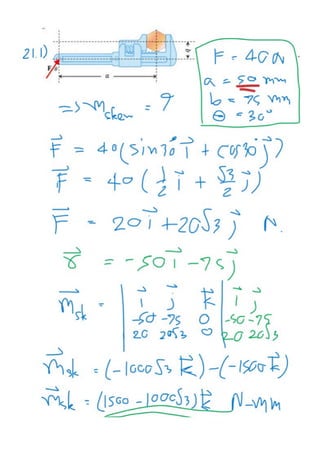 21.1)
F
b
a
F = 40 N
a = 50 mm
b = 75 mm
θ = 30°
=> M⃗sken = ?
F⃗ = 40(sin30 i⃗ + cos30 j⃗)
F⃗ = 40 (½ i⃗ + √3/2 j⃗)
F⃗ = 20 i⃗ + 20√3 j⃗ N.
r⃗ = -50 i⃗ - 75 j⃗
M⃗sk = | i⃗ j⃗ k⃗ | i⃗ j⃗
-50 -75 0 | -50 -75
20 20√3 0 | 20 20√3
M⃗sk = (-1000√3 k⃗) - (-1500 k⃗)
M⃗sk = (1500 - 1000√3) k⃗ N-mm